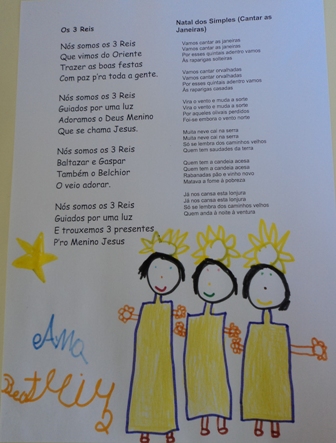 Os 3 Reis
Nós somos os 3 Reis
Que vimos do Oriente
Trazer as boas festas
Com paz p'ra toda a gente.
Nós somos os 3 Reis
Guiados por uma luz
Adoramos o Deus Menino
Que se chama Jesus.
Nós somos os 3 Reis
Baltazar e Gaspar
Também o Belchior
O veio adorar.
Nós somos os 3 Reis
Guiados por uma luz
E trouxemos 3 presentes
P'ro Menino Jesus
Natal dos Simples (Cantar as
Janeiras)
Vamos cantar as janeiras
Vamos cantar as janeiras
Por esses quintais adentro vamos
Às raparigas solteiras
Vamos cantar orvalhadas
Vamos cantar orvalhadas
Por esses quintais adentro vamos
Às raparigas casadas
Vira o vento e muda a sorte
Vira o vento e muda a sorte
Por aqueles olivais perdidos
Foi-se embora o vento norte
Muita neve cai na serra
Muita neve cai na serra
Só se lembra dos caminhos velhos
Quem tem saudades da terra
Quem tem a candeia acesa
Quem tem a candeia acesa
Rabanadas pão e vinho novo
Matava a fome à pobreza
Já nos cansa esta lonjura
Já nos cansa esta lonjura
Só se lembra dos caminhos velhos
Quem anda à noite à ventura
Ana
Beatriz